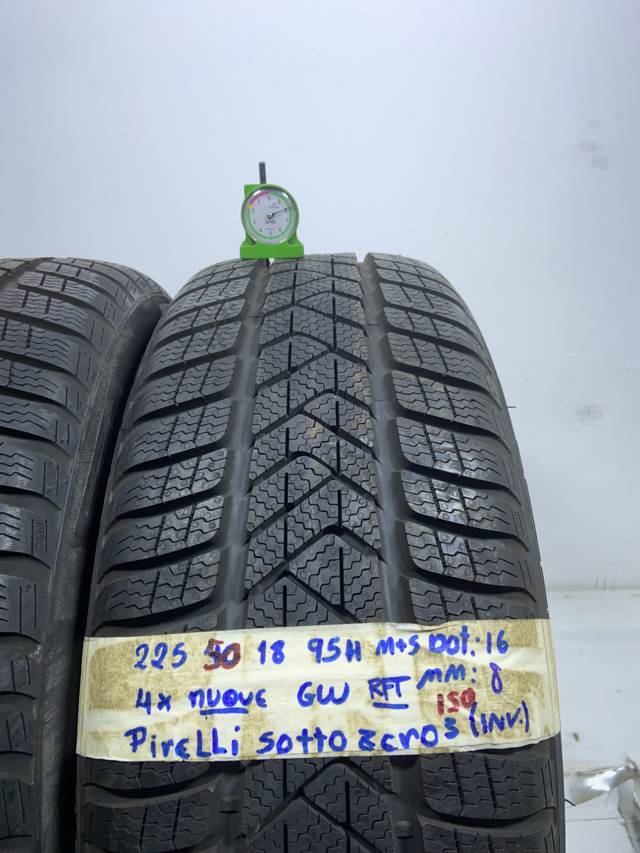 225 50 18 95H M+S DOT: 16
4x nuove GW RFT MM: 8
150
Pirelli Sottozero 3 (INV.)